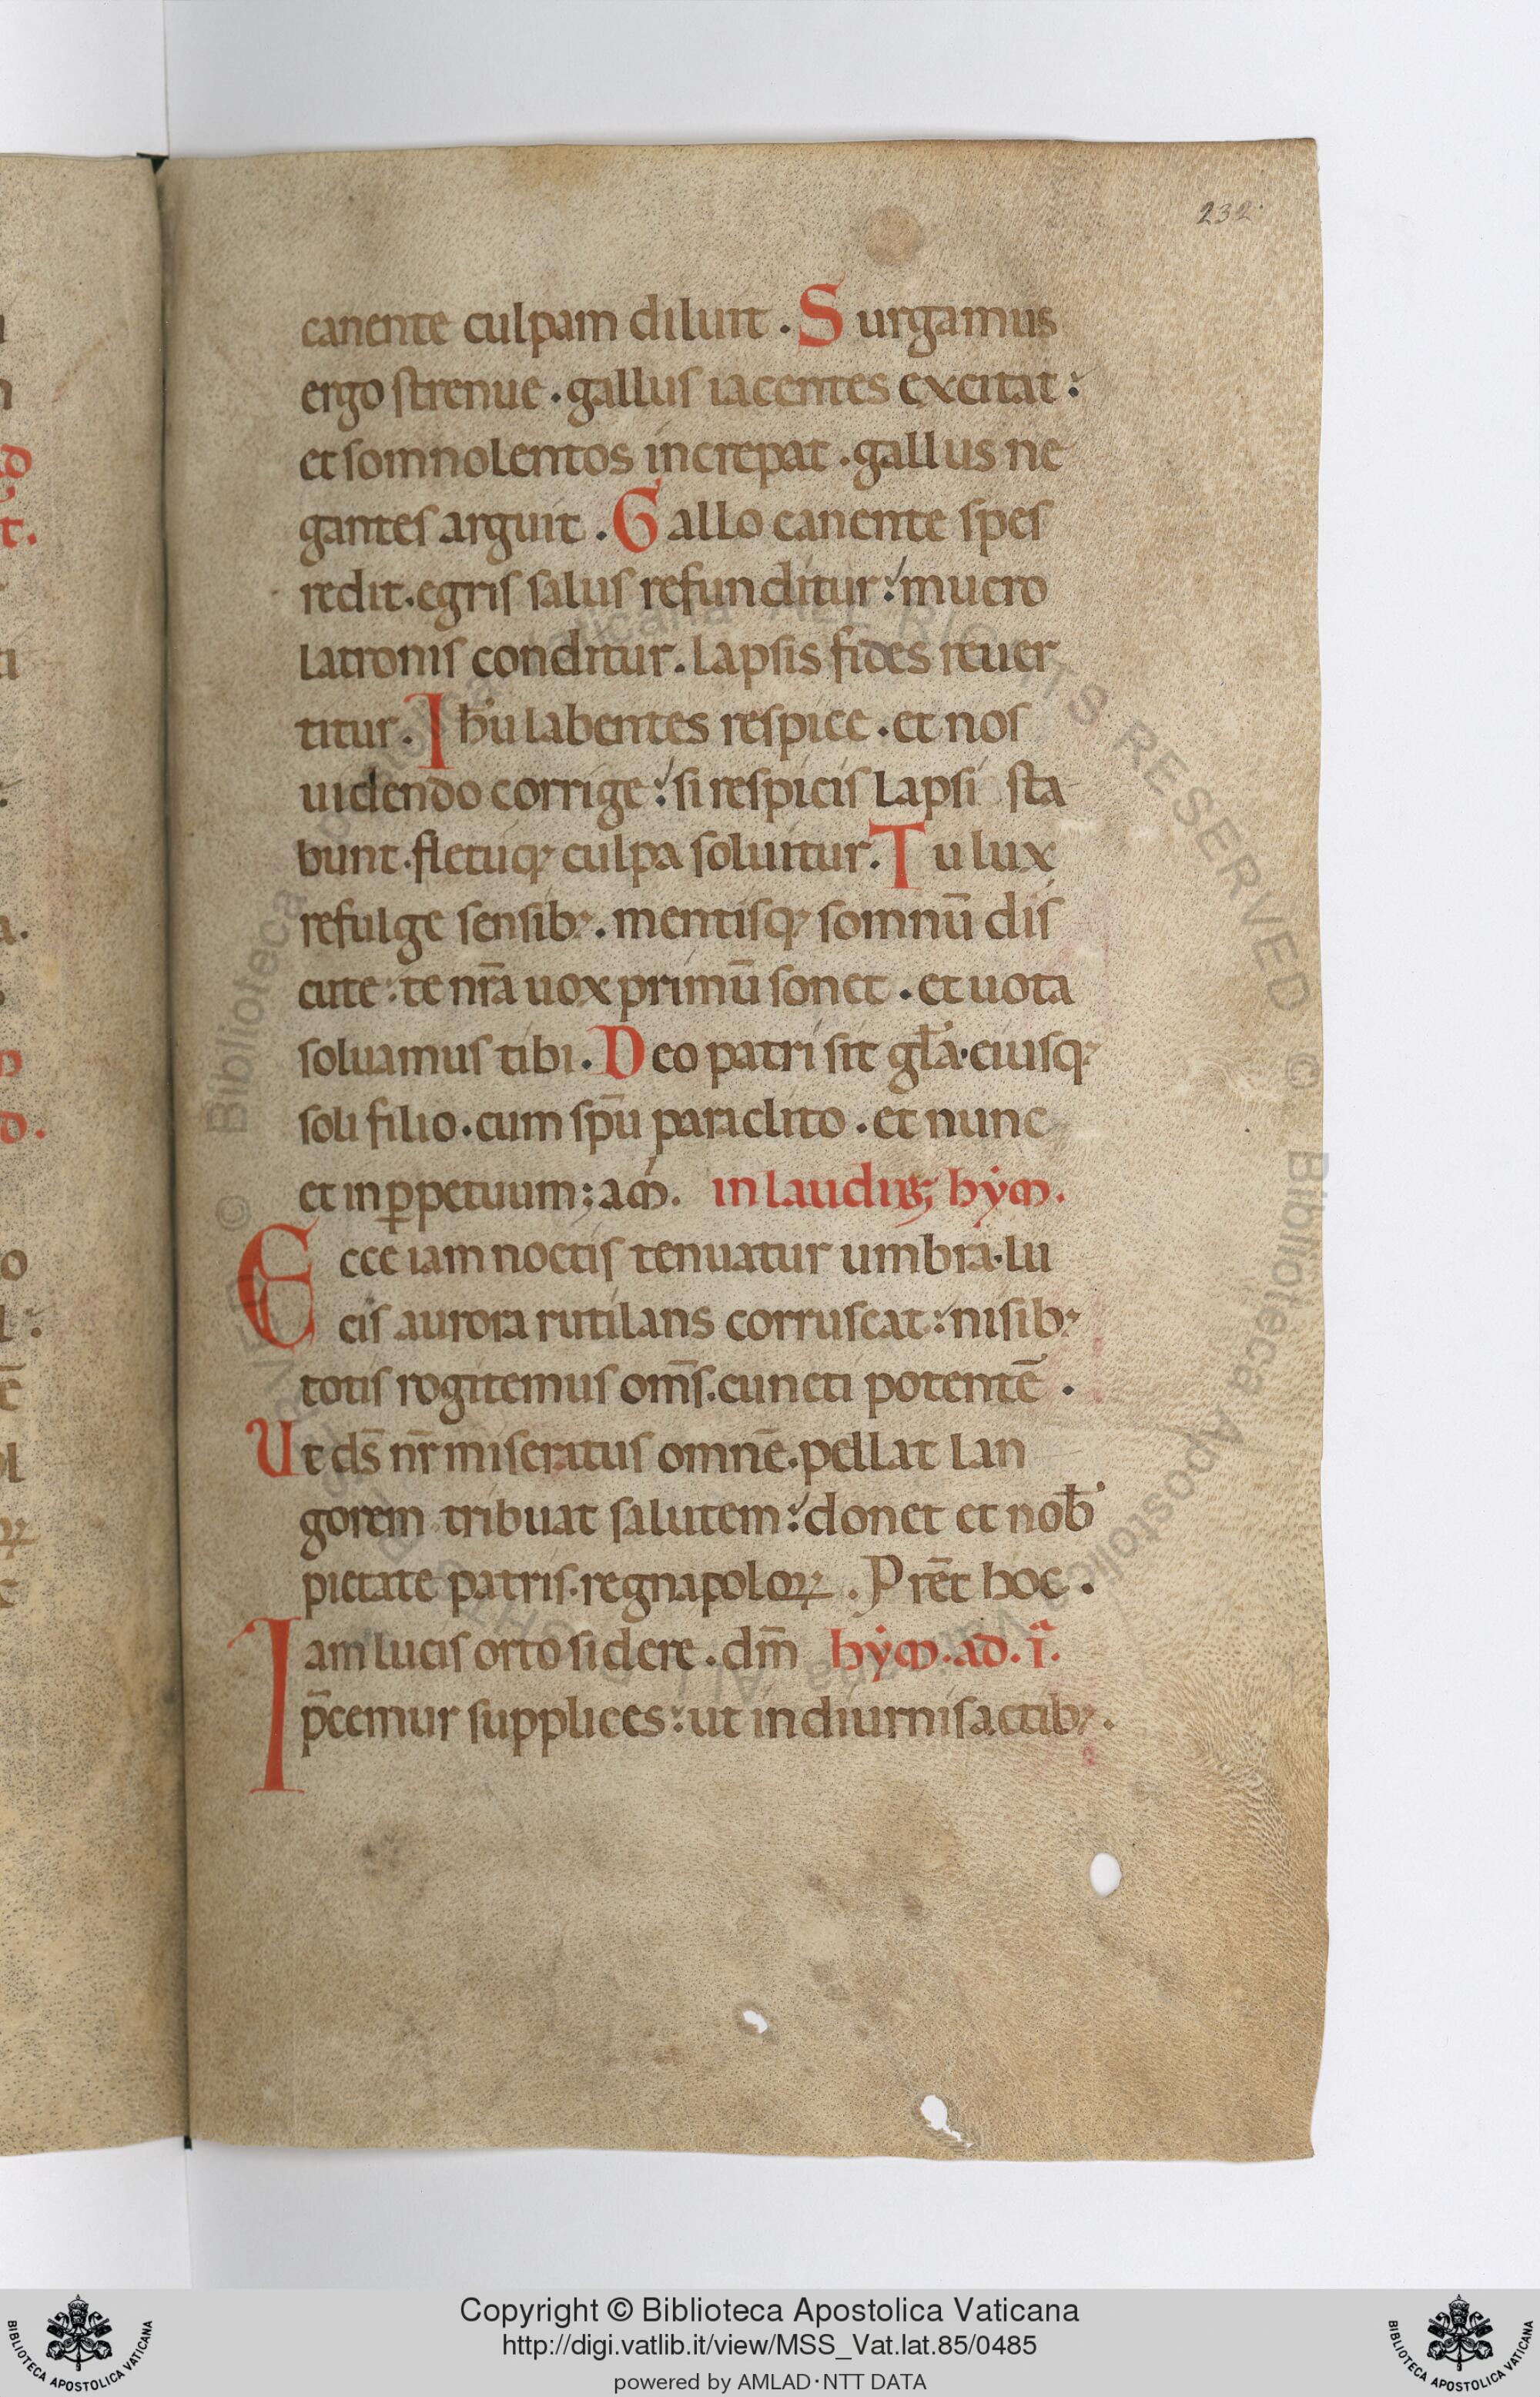 232
canente culpam diluit . Surgamus
ergo strenue . gallus iacentes excitat :
et somnolentos increpat . gallus ne
gantes arguit . Gallo canente spes
redit . egris salus refunditur : mucro
latronis conditur . lapsis fides reuer
titur . Ihu labentes respice . et nos
uidendo corrige : si respicis lapsi sta
bunt . fletuq; culpa soluitur . Tu lux
refulge sensib; . mentisq; somnū dis
cute : te nr̄a uox primū sonet . et uota
soluamus tibi . Deo patri sit gl̄a . eiusq;
soli filio . cum sp̄u paraclito . et nunc
et in ꝑpetuum ; am̄ . in laudib; hẏm .
Ecce iam noctis tenuatur umbra . lu
cis aurora rutilans corruscat : nisib;
totis rogitemus om̄s . cuncti potentē .
Ut ds̄ nr̄ miseratus omnē . pellat lan
gorem tribuat salutem : donet et nob̄
pietate patris . regna poloꝝ . Prēt hoc .
Iam lucis orto sidere . dm̄ hẏm . ad . i.ͣ
p̄cemur supplices : ut in diurnis actib; .
© Biblioteca Apostolica Vaticana ALL RIGHTS RESERVED
© Biblioteca Apostolica Vaticana ALL RIGHTS RESERVED
Copyright © Biblioteca Apostolica Vaticana
http://digi.vatlib.it/view/MSS_Vat.lat.85/0485
powered by AMLAD·NTT DATA
BIBLIOTECA APOSTOLICA VATICANA
BIBLIOTECA APOSTOLICA VATICANA